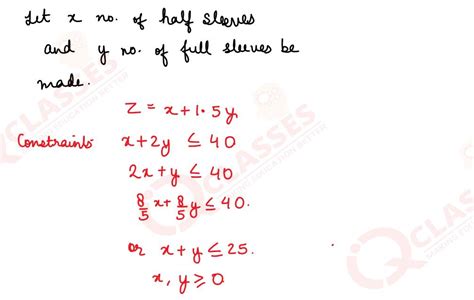 Let x no. of half sleeves
and y no. of full sleeves be
made.
Z = x+1.5y
Constraints x+2y ≤ 40
2x+y ≤ 40
8/5 x + 8/5 y ≤ 40.
or x+y ≤ 25.
x, y ≥ 0